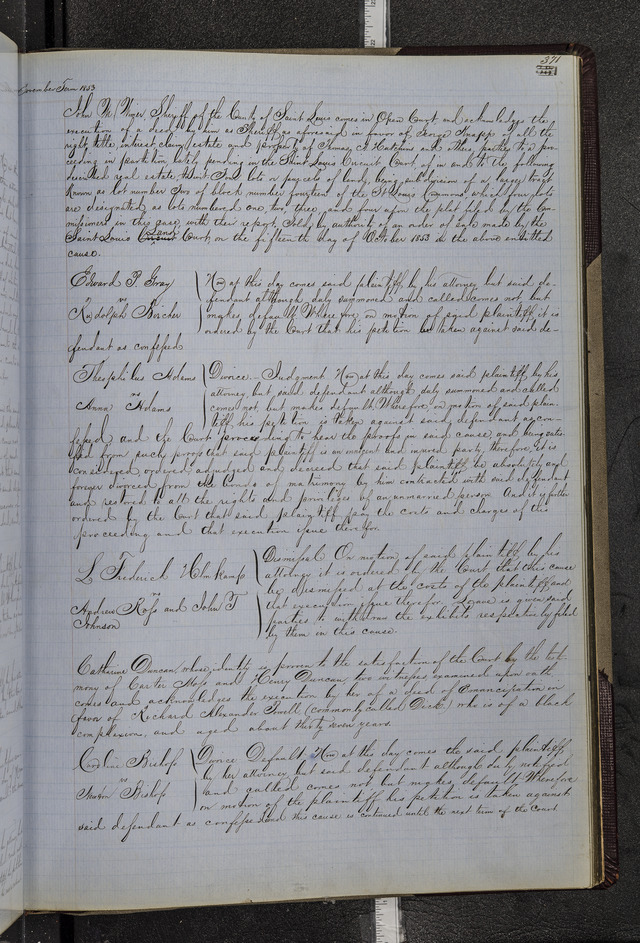 371
November Term 1853
John M Wimer Sheriff of the County of Saint Louis comes in Open Court and acknowledges the
execution of a deed by him as Sheriff as aforesaid in favor of George Knapp of all the
right title interest claim estate and property of Thomas T and the other parties to a pro-
ceeding in partition lately pending in the Saint Louis Circuit Court, of in and to the following
described real estate, to wit: Four lots or parcels of land, being subdivision of a larger tract
known as lot number two of block number fourteen of the St Louis Commons, which four lots
are designated as lots numbered one, two three, and four upon the plat filed by the Com-
missioners in this case with their report, Sold by authority of an order of sale made by the
Saint Louis Land Court, on the fifteenth day of October 1853 in the above entitled
cause.
Edward P. Gray
vs
Rudolph Bircher
Now at this day comes said plaintiff by his attorney but said de-
fendant although duly summoned and called comes not but
makes default. Wherefore on motion of said plaintiff it is
ordered by the Court that his petition be taken against said de-
fendant as confessed
Theophilus Adams
vs
Anna Adams
Divorce. Judgment Now at this day comes said plaintiff by his
attorney, but said defendant although duly summoned and called
comes not, but makes default. Wherefore on motion of said plain-
tiff, his petition is taken against said defendant as con-
fessed, and the Court proceeding to hear the proofs in said cause and being satis-
fied from such proofs that said plaintiff is an innocent and injured party, therefore, it is
considered ordered adjudged and decreed that said plaintiff be absolutely and
forever divorced from the bonds of matrimony by him contracted with said defendant
and restored to all the rights and privileges of an unmarried person. And it is further
ordered by the Court that said plaintiff pay the costs and charges of this
proceeding and that execution issue therefor.
L Frederick Helmkamp
vs
Andrew Ross and John T
Johnson
Dismissal On motion of said plaintiff by his
attorney it is ordered by the Court that this cause
be dismissed at the costs of the plaintiff and
that execution issue therefor. Leave is given said
parties to withdraw the exhibits respectively filed
by them in this cause.
Catharine Duncan, whose identity is proven to the satisfaction of the Court by the testi-
mony of Carter Moss and Henry Duncan, two witnesses examined upon oath
comes and acknowledges the execution by her of a deed of Emancipation in
favor of Richard Alexander Powell (commonly called Dick) who is of a black
complexion, and aged about thirty seven years.
Caroline Bishop
vs
Bishop
Divorce Default. Now at the day comes the said plaintiff,
by her attorney, but said defendant although duly notified
and called comes not but makes default. Wherefore
on motion of the plaintiff his petition is taken against
said defendant as confessed and this cause is continued until the next term of the Court